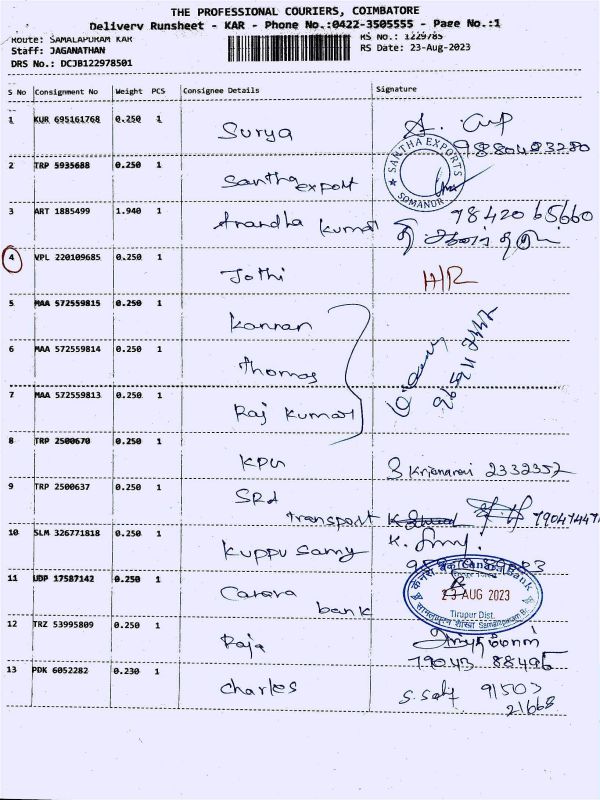 THE PROFESSIONAL COURIERS, COIMBATORE
Delivery Runsheet - KAR - Phone No.:0422-3505555 - Page No.:1
Route: SAMALAPURAM KAR
RS No.: 1229785
Staff: JAGANATHAN
RS Date: 23-Aug-2023
DRS No.: DCJB122978501
S No Consignment No Weight PCS Consignee Details Signature
1 KUR 695161768 0.250 1 Surya
9880483280
2 TRP 5935688 0.250 1 Santha export
SANTHA EXPORTS
SOMANUR
3 ART 1885499 1.940 1 Anandha kumar 78420 65660
4 VPL 220109685 0.250 1 Jothi H/R
5 MAA 572559815 0.250 1 Kannan
6 MAA 572559814 0.250 1 Thomas
7 MAA 572559813 0.250 1 Raj kumar
8 TRP 2500670 0.250 1 KPU 2332357
9 TRP 2500637 0.250 1 SRd
transport
10 SLM 326771818 0.250 1 Kuppu Samy K.
11 UDP 17587142 0.250 1 Canara
bank
केनरा बैंक Canara Bank
23 AUG 2023
Tirupur Dist.
12 TRZ 53995809 0.250 1 Raja
79043 88496
13 PDK 6052282 0.230 1 Charles 91503
21668